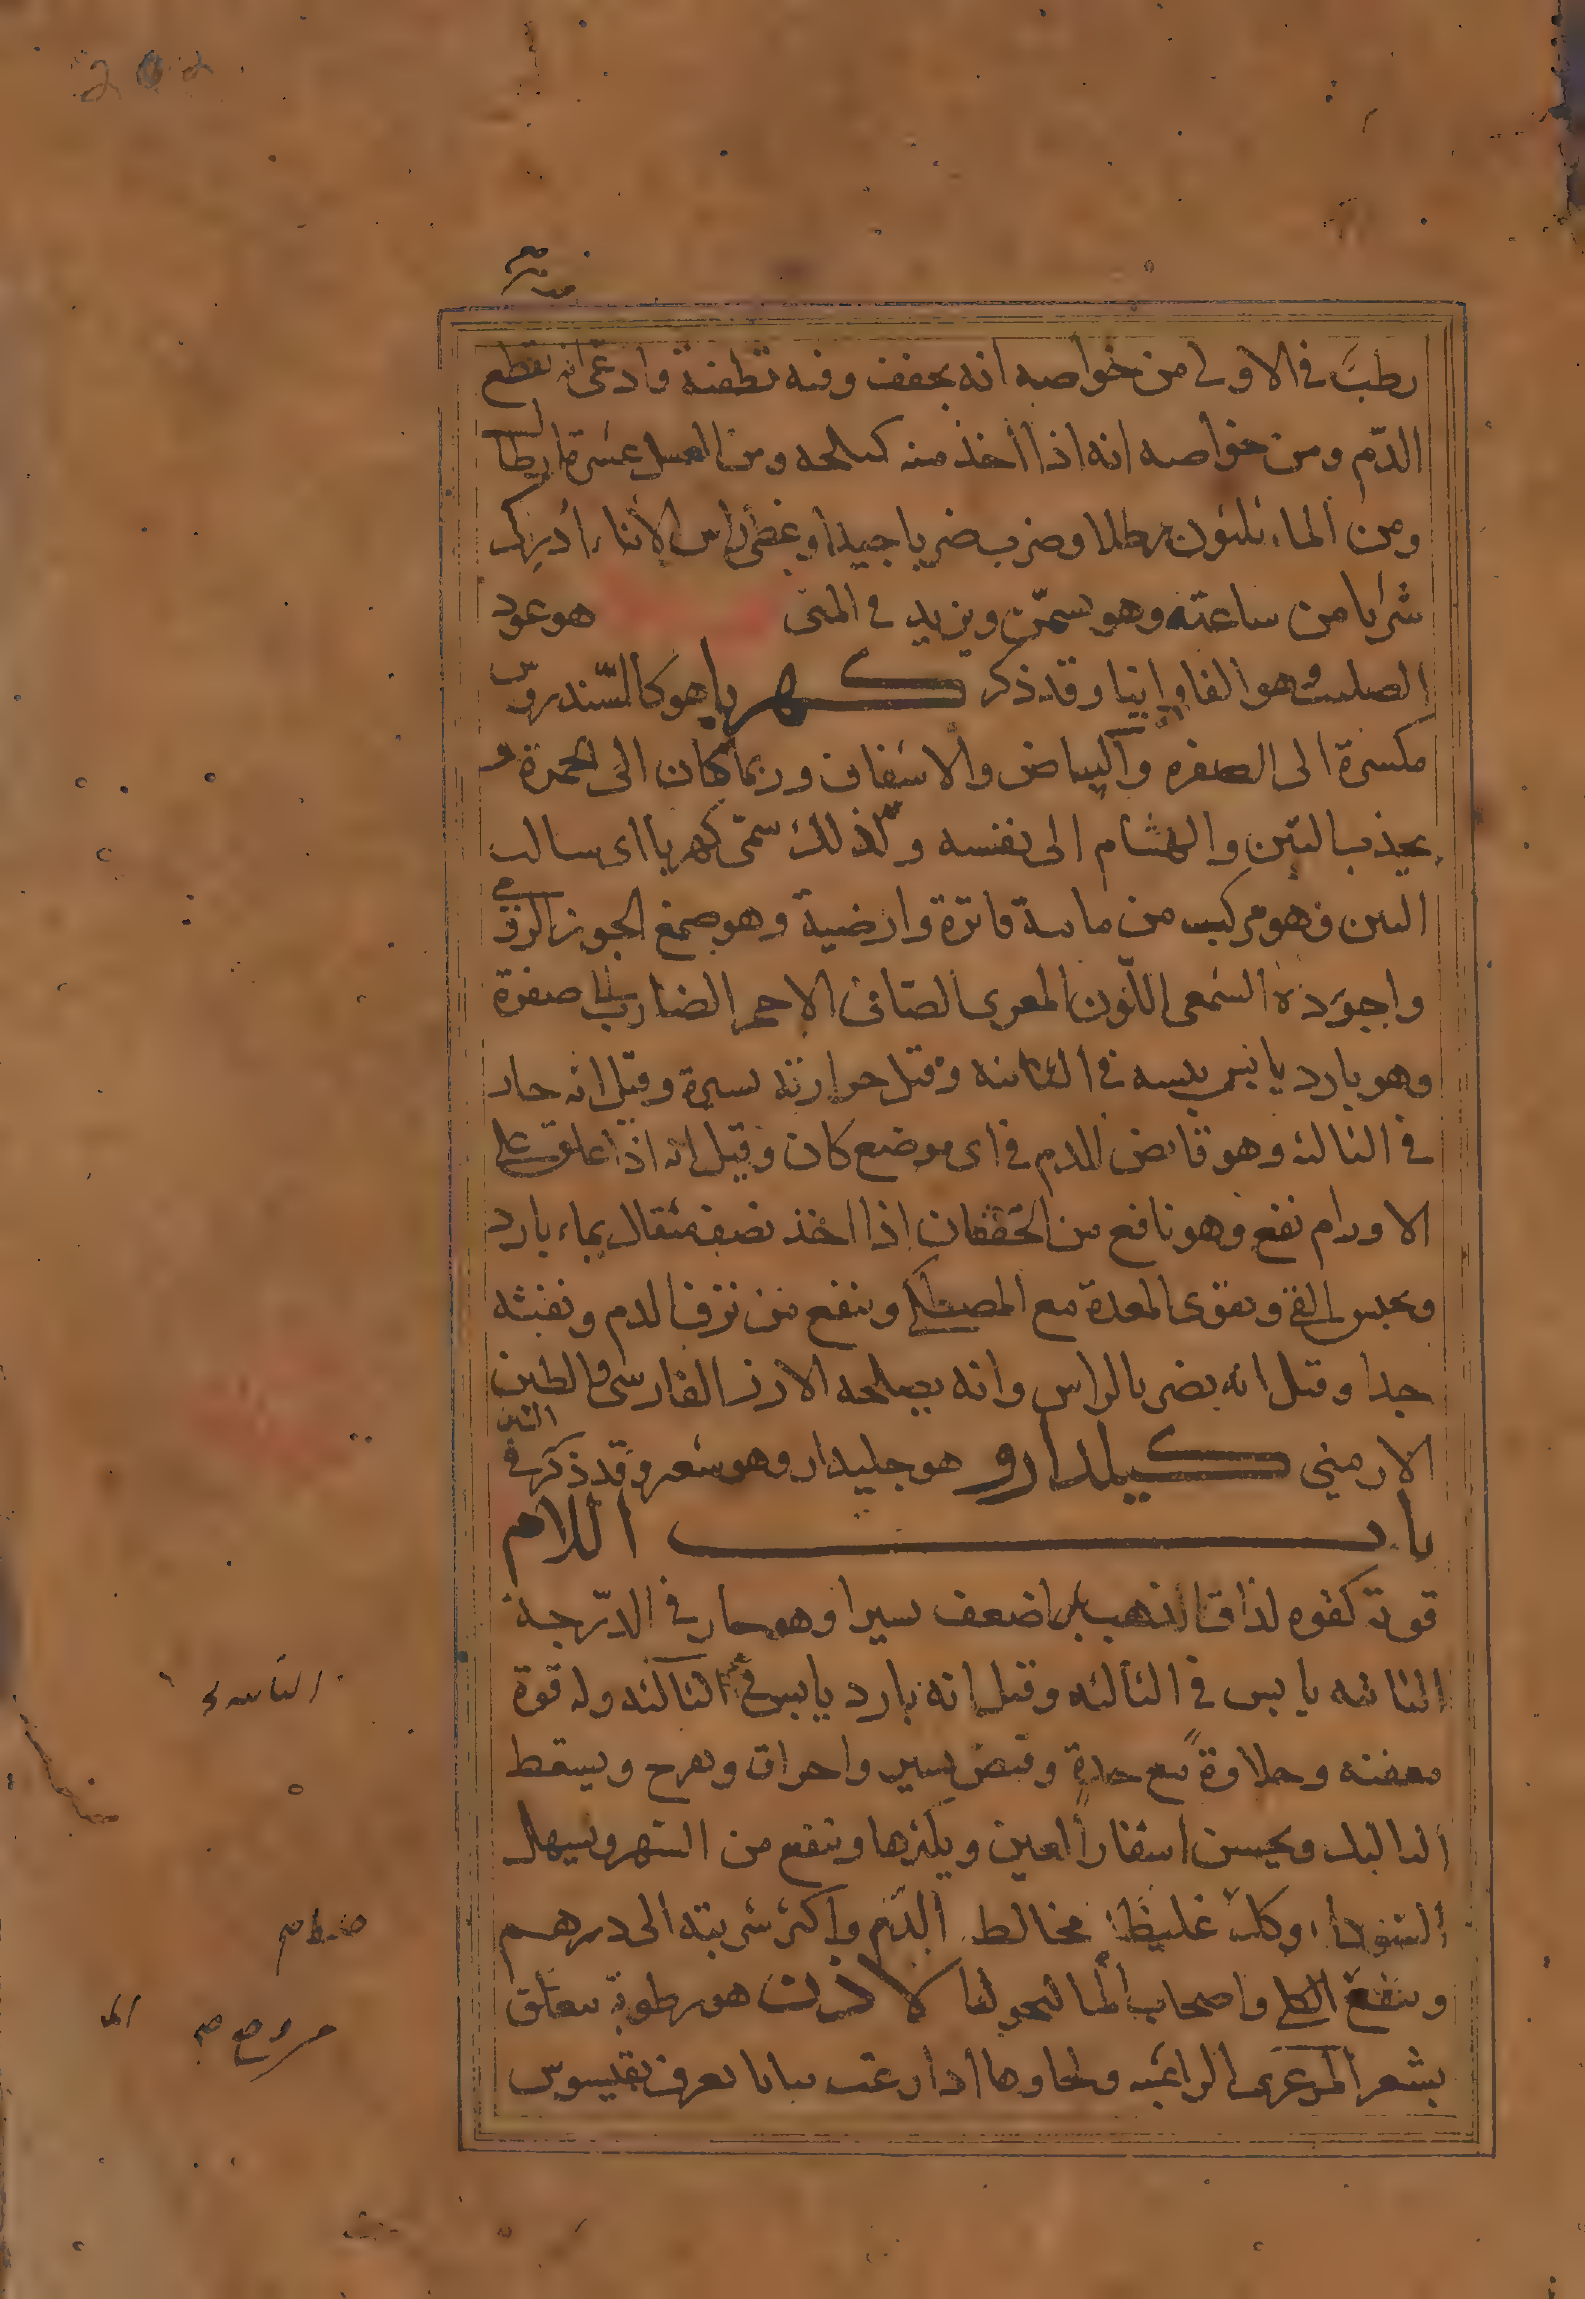 رطب في الاولى من خواصه انه يجفف وفيه تطفئة وادعى انه يقطع
الدم ومن خواصه انه اذا اخذ منه كيلجه ومن العسل عشرة ارطال
ومن الماء ثلثون رطلا وضرب ضربا جيدا وغطى راس الاناء ادرك
شرابا من ساعته وهو يسمن ويزيد في المنى هو عود
الصليب وهو الفاوانيا وقد ذكر كهربا هو كالسندروس
مكسره الى الصفره والبياض والاشفاف وربما كان الى الحمرة و
يجذب التبن والهشام الى نفسه ولذلك سمى كهربا اى سالب
التبن وهو مركب من مائية فاترة وارضية وهو صمغ الجوز الرومي
واجوده الشمعى اللون المغرى الصافى الاحمر الضارب الى صفرة
وهو بارد يابس يبسه في الثانيه وقيل حرارته يسيرة وقيل انه حار
في الثالثه وهو قابض للدم في اى موضع كان وقيل انه اذا علق على
الاورام نفع وهو نافع من الخفقان اذا اخذ نصف مثقال بماء بارد
ويحبس القئ ويقوى المعدة مع المصطكى وينفع من نزف الدم ونفثه
جدا وقيل انه يضر بالراس وانه يصلحه الارز الفارسى والطين
الارمني كيلدارو هو جليدارو هو شعر وقد ذكر في الشين
باب اللام
قوته كقوه لذاق الذهب بل اضعف يسيرا وهو حار في الدرجة
الثانيه يابس في الثالثه وقيل انه بارد يابس في الثالثه وله قوة
معفنه وحلاوة مع حدة وقبض يسير واحراق ويقرح ويسقط
الثاليل ويحسن اشفار العين ويكثرها وينفع من السهر ويسهل
السوداء وكل غليظ مخالط الدم واكثر شربته الى درهم
وينفع الكلى واصحاب المالنخوليا لاذن هو رطوبة تتعلق
بشعر المرعزى الراعيه ولحاوها اذا رعت نباتا يعرف بقيسوس